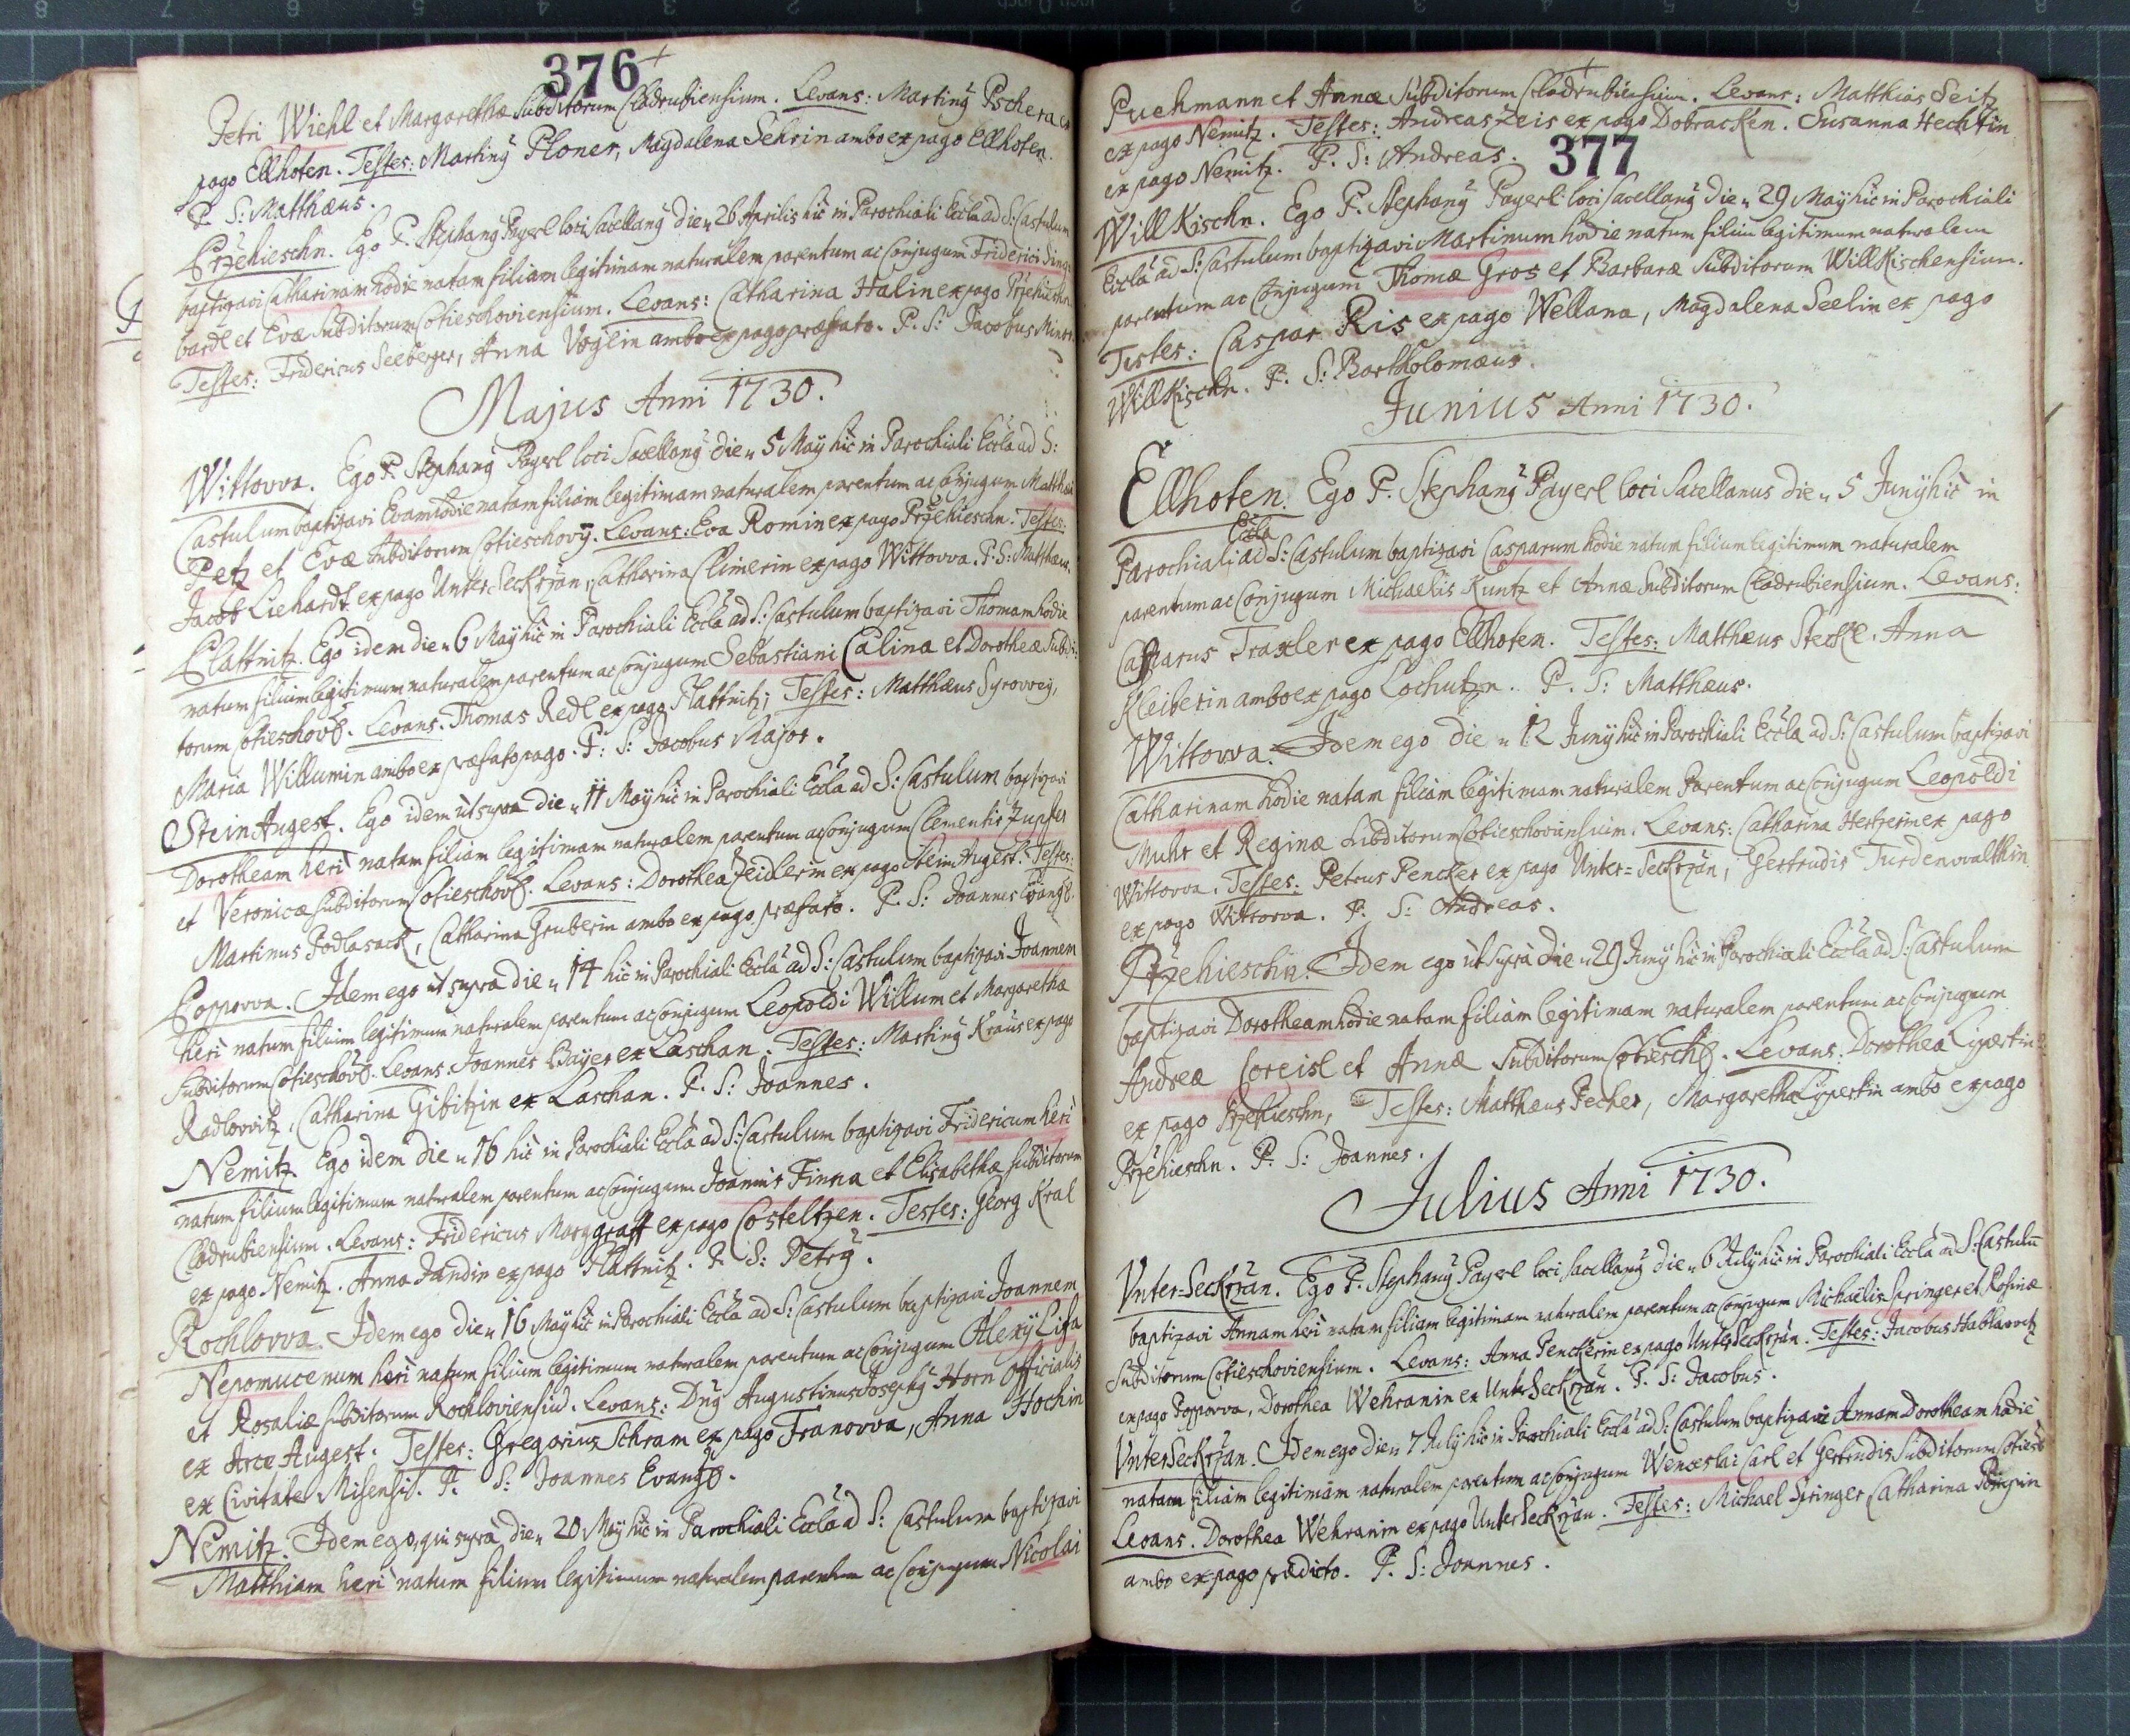 376
Petri Wiehl et Margarethæ Subditorum Cladrubiensium. Levans: Martinȳ Pschera ex
pago Ellhoten. Testes: Martinȳ Ploner, Magdalena Sehrin ambo ex pago Ellhoten.
P. S: Matthæus.
Przehieschn. Ego P. Stephanȳ Payerl loci Sacellanȳ die 26 Aprilis hic in Parochiali Eccla ad S: Castulum
baptizavi Catharinam hodie natam filiam legitimam naturalem parentum ac Conjugum Friderici
bardl et Evæ Subditorum Cotieschoviensium. Levans: Catharina Halin ex pago Przehieschn
Testes: Fridericus Seeberger, Anna Voglin ambo ex pago præfato. P. S: Jacobus Minor.
Majus Anni 1730.
Wittovva. Ego P. Stephanȳ Payerl loci Sacellanȳ die 5 Maÿ hic in Parochiali Eccla ad S:
Castulum baptizavi Evam hodie natam filiam legitimam naturalem parentum ac Conjugum Matthæi
Petz et Evæ Subditorum Cotieschov. Levans: Eva Romin ex pago Przehieschn. Testes:
Jacob Liehardt ex pago Unter Seckrzan, Catharina Climerin ex pago Wittovva. P. S: Matthæus.
Plattnitz. Ego idem die 6 Maÿ hic in Parochiali Eccla ad S: Castulum baptizavi Thomam hodie
natum filium legitimum naturalem parentum ac Conjugum Sebastiani Calina et Dorotheæ Subdi-
torum Cotieschov. Levans. Thomas Redl ex pago Plattnitz; Testes: Matthæus Syrovveÿ,
Maria Willumin ambo ex præfato pago. P: S: Jacobus Major.
Stein Augest. Ego idem ut supra die 11 Maÿ hic in Parochiali Eccla ad S: Castulum baptizavi
Dorotheam heri natam filiam legitimam naturalem parentum ac Conjugum Clementis Zupfer
et Veronicæ Subditorum Cotieschov. Levans: Dorothea Zeidlerin ex pago Stein Augest. Testes:
Martinus Podlasack, Catharina Gruberin ambo ex pago præfato. P. S: Joannes Evang.
Popovva. Idem ego ut supra die 14 hic in Parochiali Eccla ad S: Castulum baptizavi Joannem
heri natum filium legitimum naturalem parentum ac Conjugum Leopoldi Willum et Margarethæ
Subditorum Cotieschov. Levans. Joannes Bayer ex Laschan. Testes: Martinȳ Kraus ex pago
Radlovvitz, Catharina Gibitzin ex Laschan. P. S: Joannes.
Nemitz Ego idem die 16 hic in Parochiali Eccla ad S: Castulum baptizavi Fridericum heri
natum filium legitimum naturalem parentum ac Conjugum Joannis Finna et Elisabethæ Subditorum
Cladrubiensium. Levans: Fridericus Marggraff ex pago Costeltzen. Testes: Georg Kral
ex pago Nemitz. Anna Jandin ex pago Plattnitz. P. S: Petrȳ.
Rochlovva. Idem ego die 16 Maÿ hic in Parochiali Eccla ad S: Castulum baptizavi Joannem
Nepomucenum heri natum filium legitimum naturalem parentum ac Conjugum Alexÿ Lisa
et Rosaliæ Subditorum Rochloviensium. Levans: Dnȳ Augustinus Josephȳ Horn Officialis
ex Arce Augest. Testes: Gregorius Schram ex pago Tranovva, Anna Hochin
ex Civitate Misensi. P. S: Joannes Evang.
Nemitz. Idem ego, qui supra die 20 Maÿ hic in Parochiali Eccla ad S: Castulum baptizavi
Matthiam heri natum filium legitimum naturalem parentum ac Conjugum Nicolai
377
Puehmann et Annæ Subditorum Cladrubiensium. Levans: Matthias Seitz
ex pago Nemitz. Testes: Andreas Zeis ex pago Dobracken. Susanna Hechtin
ex pago Nemitz. P. S: Andreas.
Willkischn. Ego P. Stephanȳ Payerl loci Sacellanȳ die 29 Maÿ hic in Parochiali
Eccla ad S: Castulum baptizavi Martinum hodie natum filium legitimum naturalem
parentum ac Conjugum Thomæ Gros et Barbaræ Subditorum Willkischensium.
Testes: Caspar Ris ex pago Wellana, Magdalena Seelin ex pago
Willkischn. P. S: Bartholomæus.
Junius Anni 1730.
Ellhoten. Ego P. Stephanȳ Payerl loci Sacellanus die 5 Junÿ hic in
Parochiali Eccla ad S: Castulum baptizavi Casparum hodie natum filium legitimum naturalem
parentum ac Conjugum Michaelis Kuntz et Annæ Subditorum Cladrubiensium. Levans:
Casparus Traxler ex pago Ellhoten. Testes: Matthæus Steckl, Anna
Kleiberin ambo ex pago Lochutzn. P. S: Matthæus.
Wittovva. Idem ego die 12 Junÿ hic in Parochiali Eccla ad S: Castulum baptizavi
Catharinam hodie natam filiam legitimam naturalem Parentum ac Conjugum Leopoldi
Muhr et Reginæ Subditorum Cotieschoviensium. Levans: Catharina Hertzerin ex pago
Wittovva. Testes: Petrus Pencker ex pago Unter=Seckrzan, Gertrudis Turdenwalthin
ex pago Wittovva. P. S: Andreas.
Przehieschn. Idem ego ut supra die 29 Junÿ hic in Parochiali Eccla ad S: Castulum
baptizavi Dorotheam hodie natam filiam legitimam naturalem parentum ac Conjugum
Andreæ Coreisl et Annæ Subditorum Cotiesch. Levans: Dorothea Lipertin
ex pago Przehieschn, Testes: Matthæus Pecher, Margaretha Lipertin ambo ex pago
Przehieschn. P. S: Joannes.
Julius Anni 1730.
Unter=Seckrzan. Ego P. Stephanȳ Payerl loci Sacellanȳ die 6 Julÿ hic in Parochiali Eccla ad S: Castulū
baptizavi Annam heri natam filiam legitimam naturalem parentum ac Conjugum Michaelis Springer et Rosinæ
Subditorum Cotieschoviensium. Levans: Anna Penckerin ex pago Unter Seckrzan. Testes: Jacobus Hablawetz
ex pago Popovva, Dorothea Wehranin ex Unter Seckrzan. P. S: Jacobus.
Unter Seckrzan. Idem ego die 7 Julÿ hic in Parochiali Eccla ad S: Castulum baptizavi Annam Dorotheam hodie
natam filiam legitimam naturalem parentum ac Conjugum Wenceslai Carl et Gertrudis Subditorum Cotiesch
Levans. Dorothea Wehranin ex pago Unter Seckrzan. Testes: Michael Springer Catharina
ambo ex pago prædicto. P. S: Joannes.